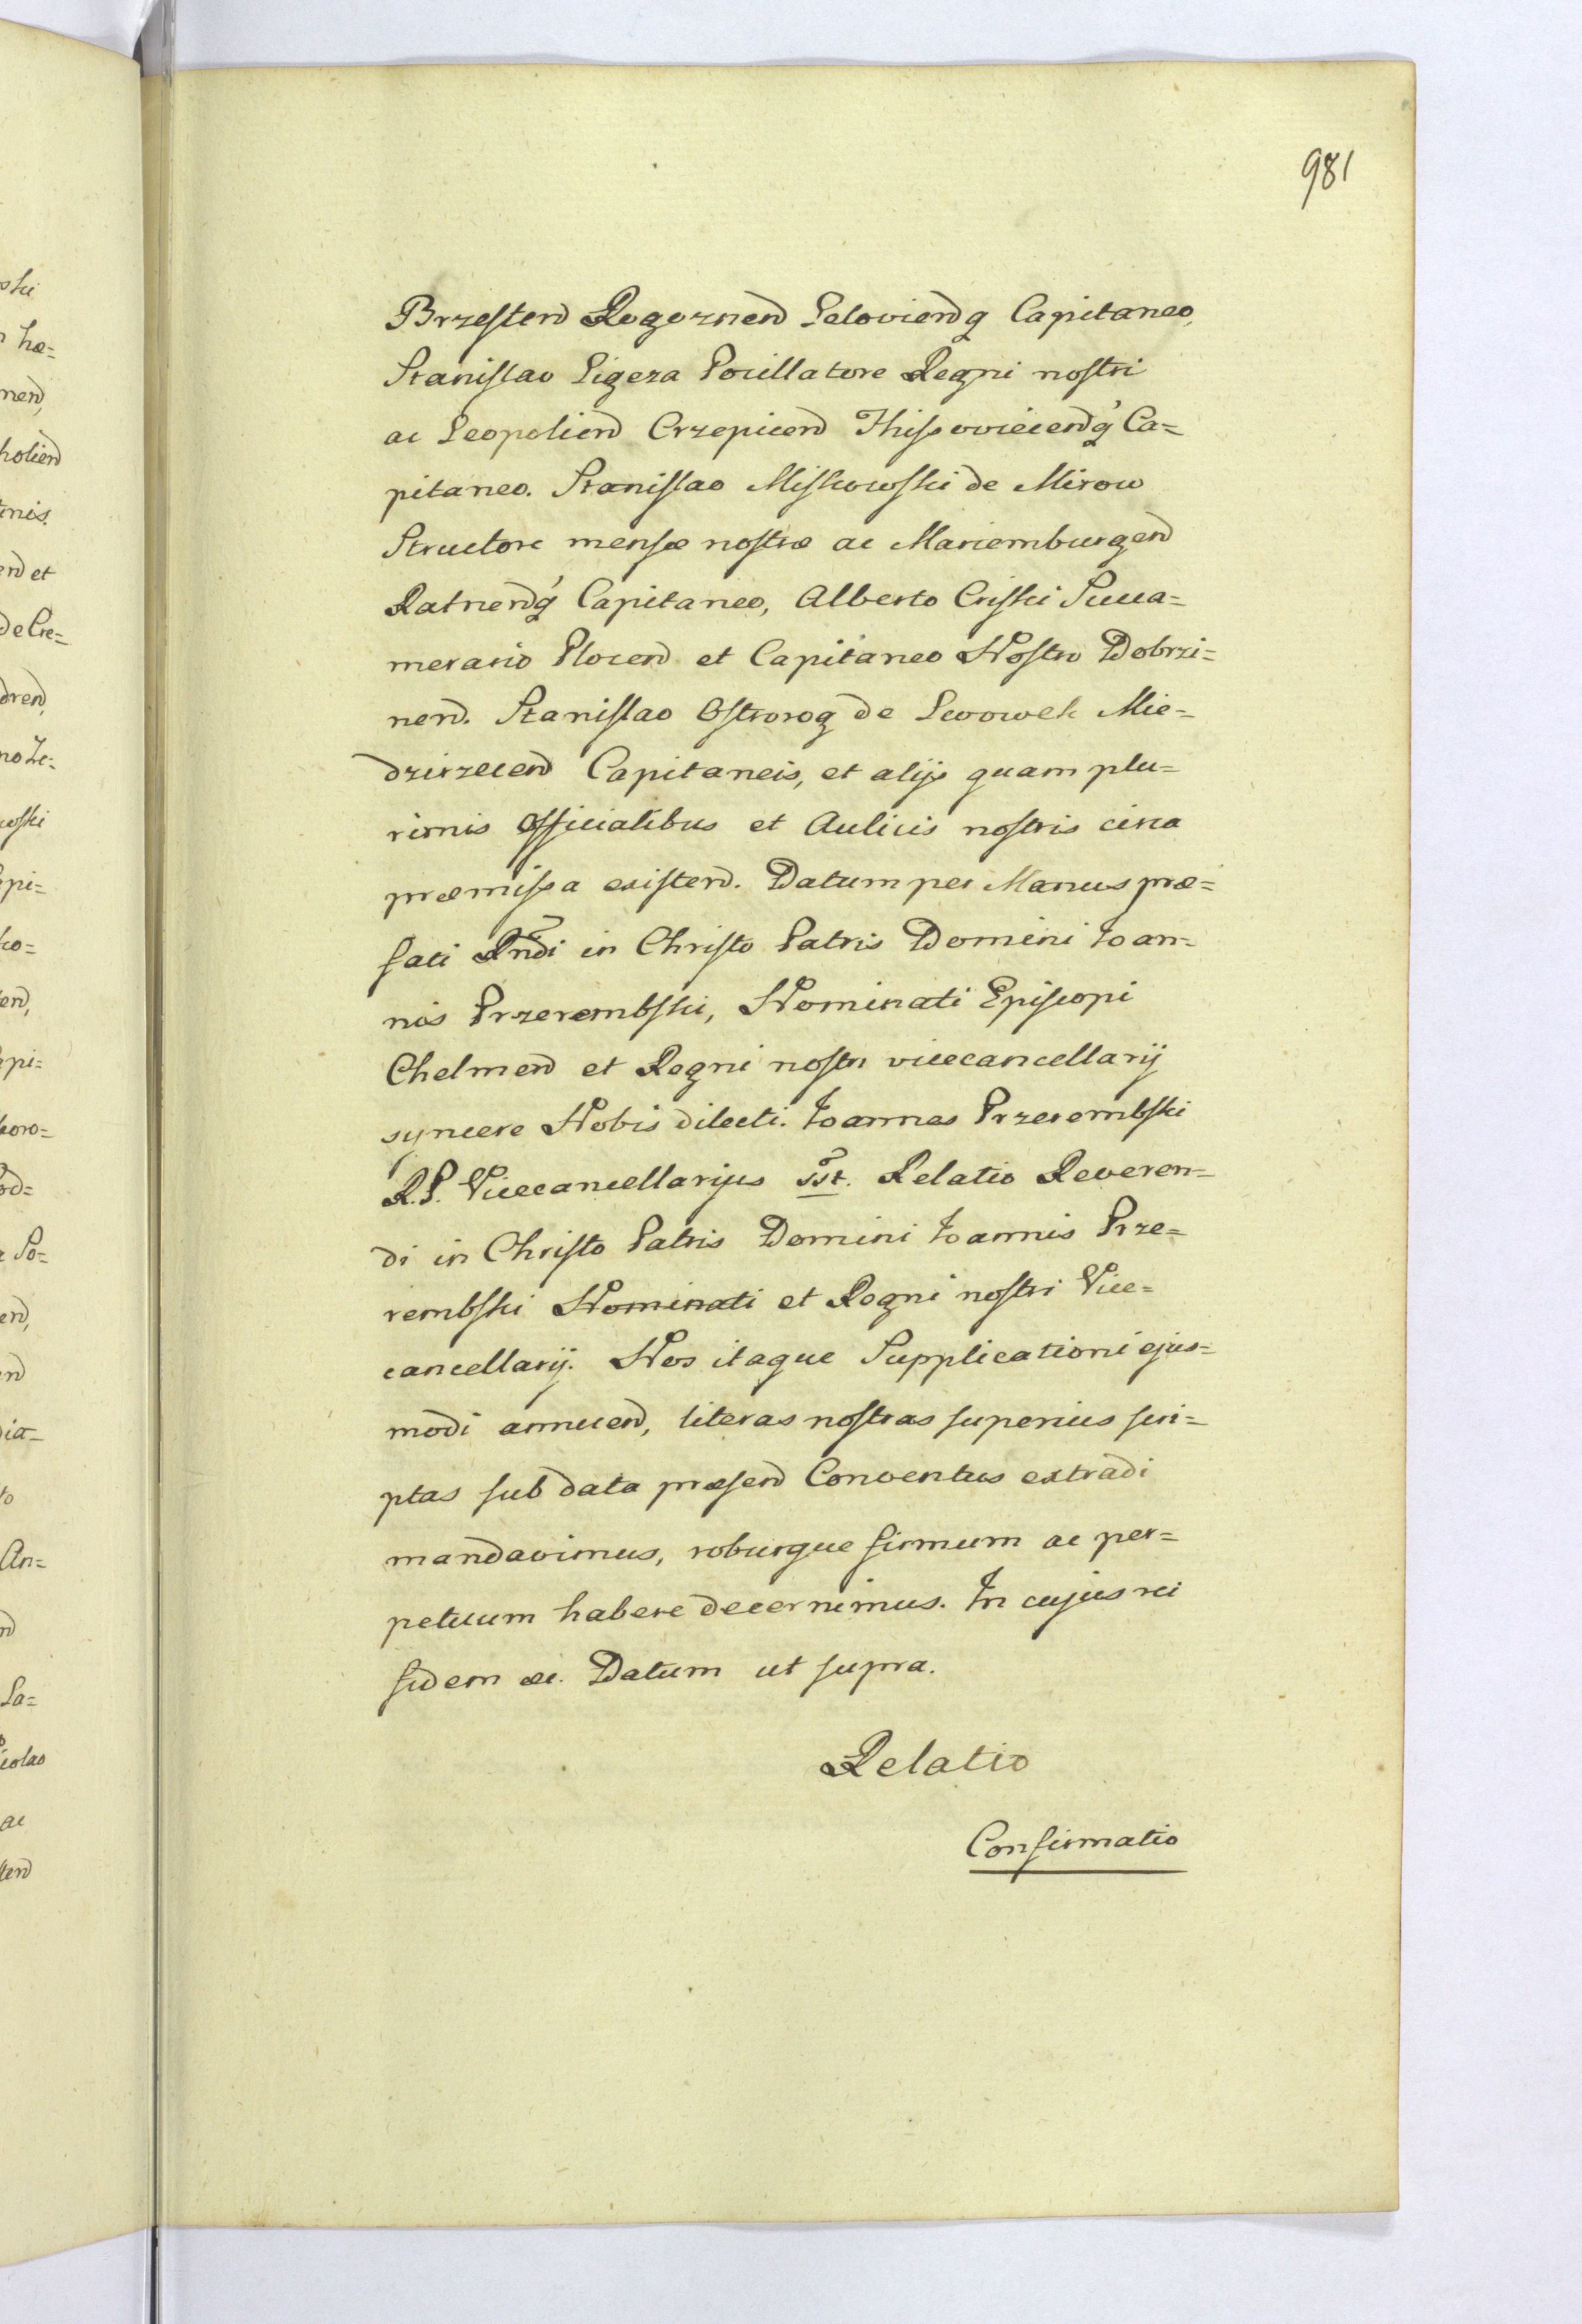 981
Brzesten Rogoznen Lelovienq Capitaneo,
Stanislao Ligeza Pocillatore Regni nostri
ac Leopolien Crzepicen Thiszoviecenq Ca=
pitaneo. Stanislao Miskowski de Mirow
Structore mensæ nostræ ac Mariemburgen
Ratnenq Capitaneo, Alberto Criski Succa=
merario Plocen et Capitaneo Nostro Dobrzi=
nen. Stanislao Ostrorog de Lwowek Mie=
dzirzecen Capitaneis, et alijs quam plu=
rimis officialibus et Aulicis nostris circa
præmissa existen. Datum per Manus præ=
fati Rndi in Christo Patris Domini Ioan=
nis Przerembski, Nominati Episcopi
Chelmen et Regni nostri vicecancellarij
syncere Nobis dilecti. Ioannes Przerembski
R.P. Vicecancellarijus sst. Relatio Reveren=
di in Christo Patris Domini Ioannis Prze=
rembski Nominati et Regni nostri Vice=
cancellarij. Nos itaque Supplicationi ejus=
modi annuen, literas nostras superius scri=
ptas sub data præsen Conventus extradi
mandavimus, roburque firmum ac per=
petuum habere decernimus. In cujus rei
fidem &c. Datum ut supra.
Relatio
Confirmatio